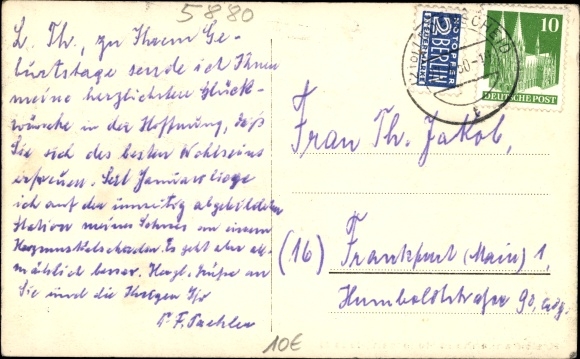 5880
L. Th., zu Ihrem Ge-
burtstage sende ich Ihnen
meine herzlichsten Glück-
wünsche in der Hoffnung, daß
Sie sich des besten Wohlseins
erfreuen. Seit Januar liege
ich auf der umseitig abgebildeten
Station meines Sohnes an einem
Herzmuskelschaden. Es geht aber all-
mählich besser. Herzl. Grüße an
Sie und die Ihrigen Ihr
F.
10€
NOTOPFER
2 BERLIN
STEUERMARKE
10
DEUTSCHE POST
SCHEID
50
Frau Th. Jakob,
(16) Frankfurt (Main) 1,
Humboldtstraße 90,